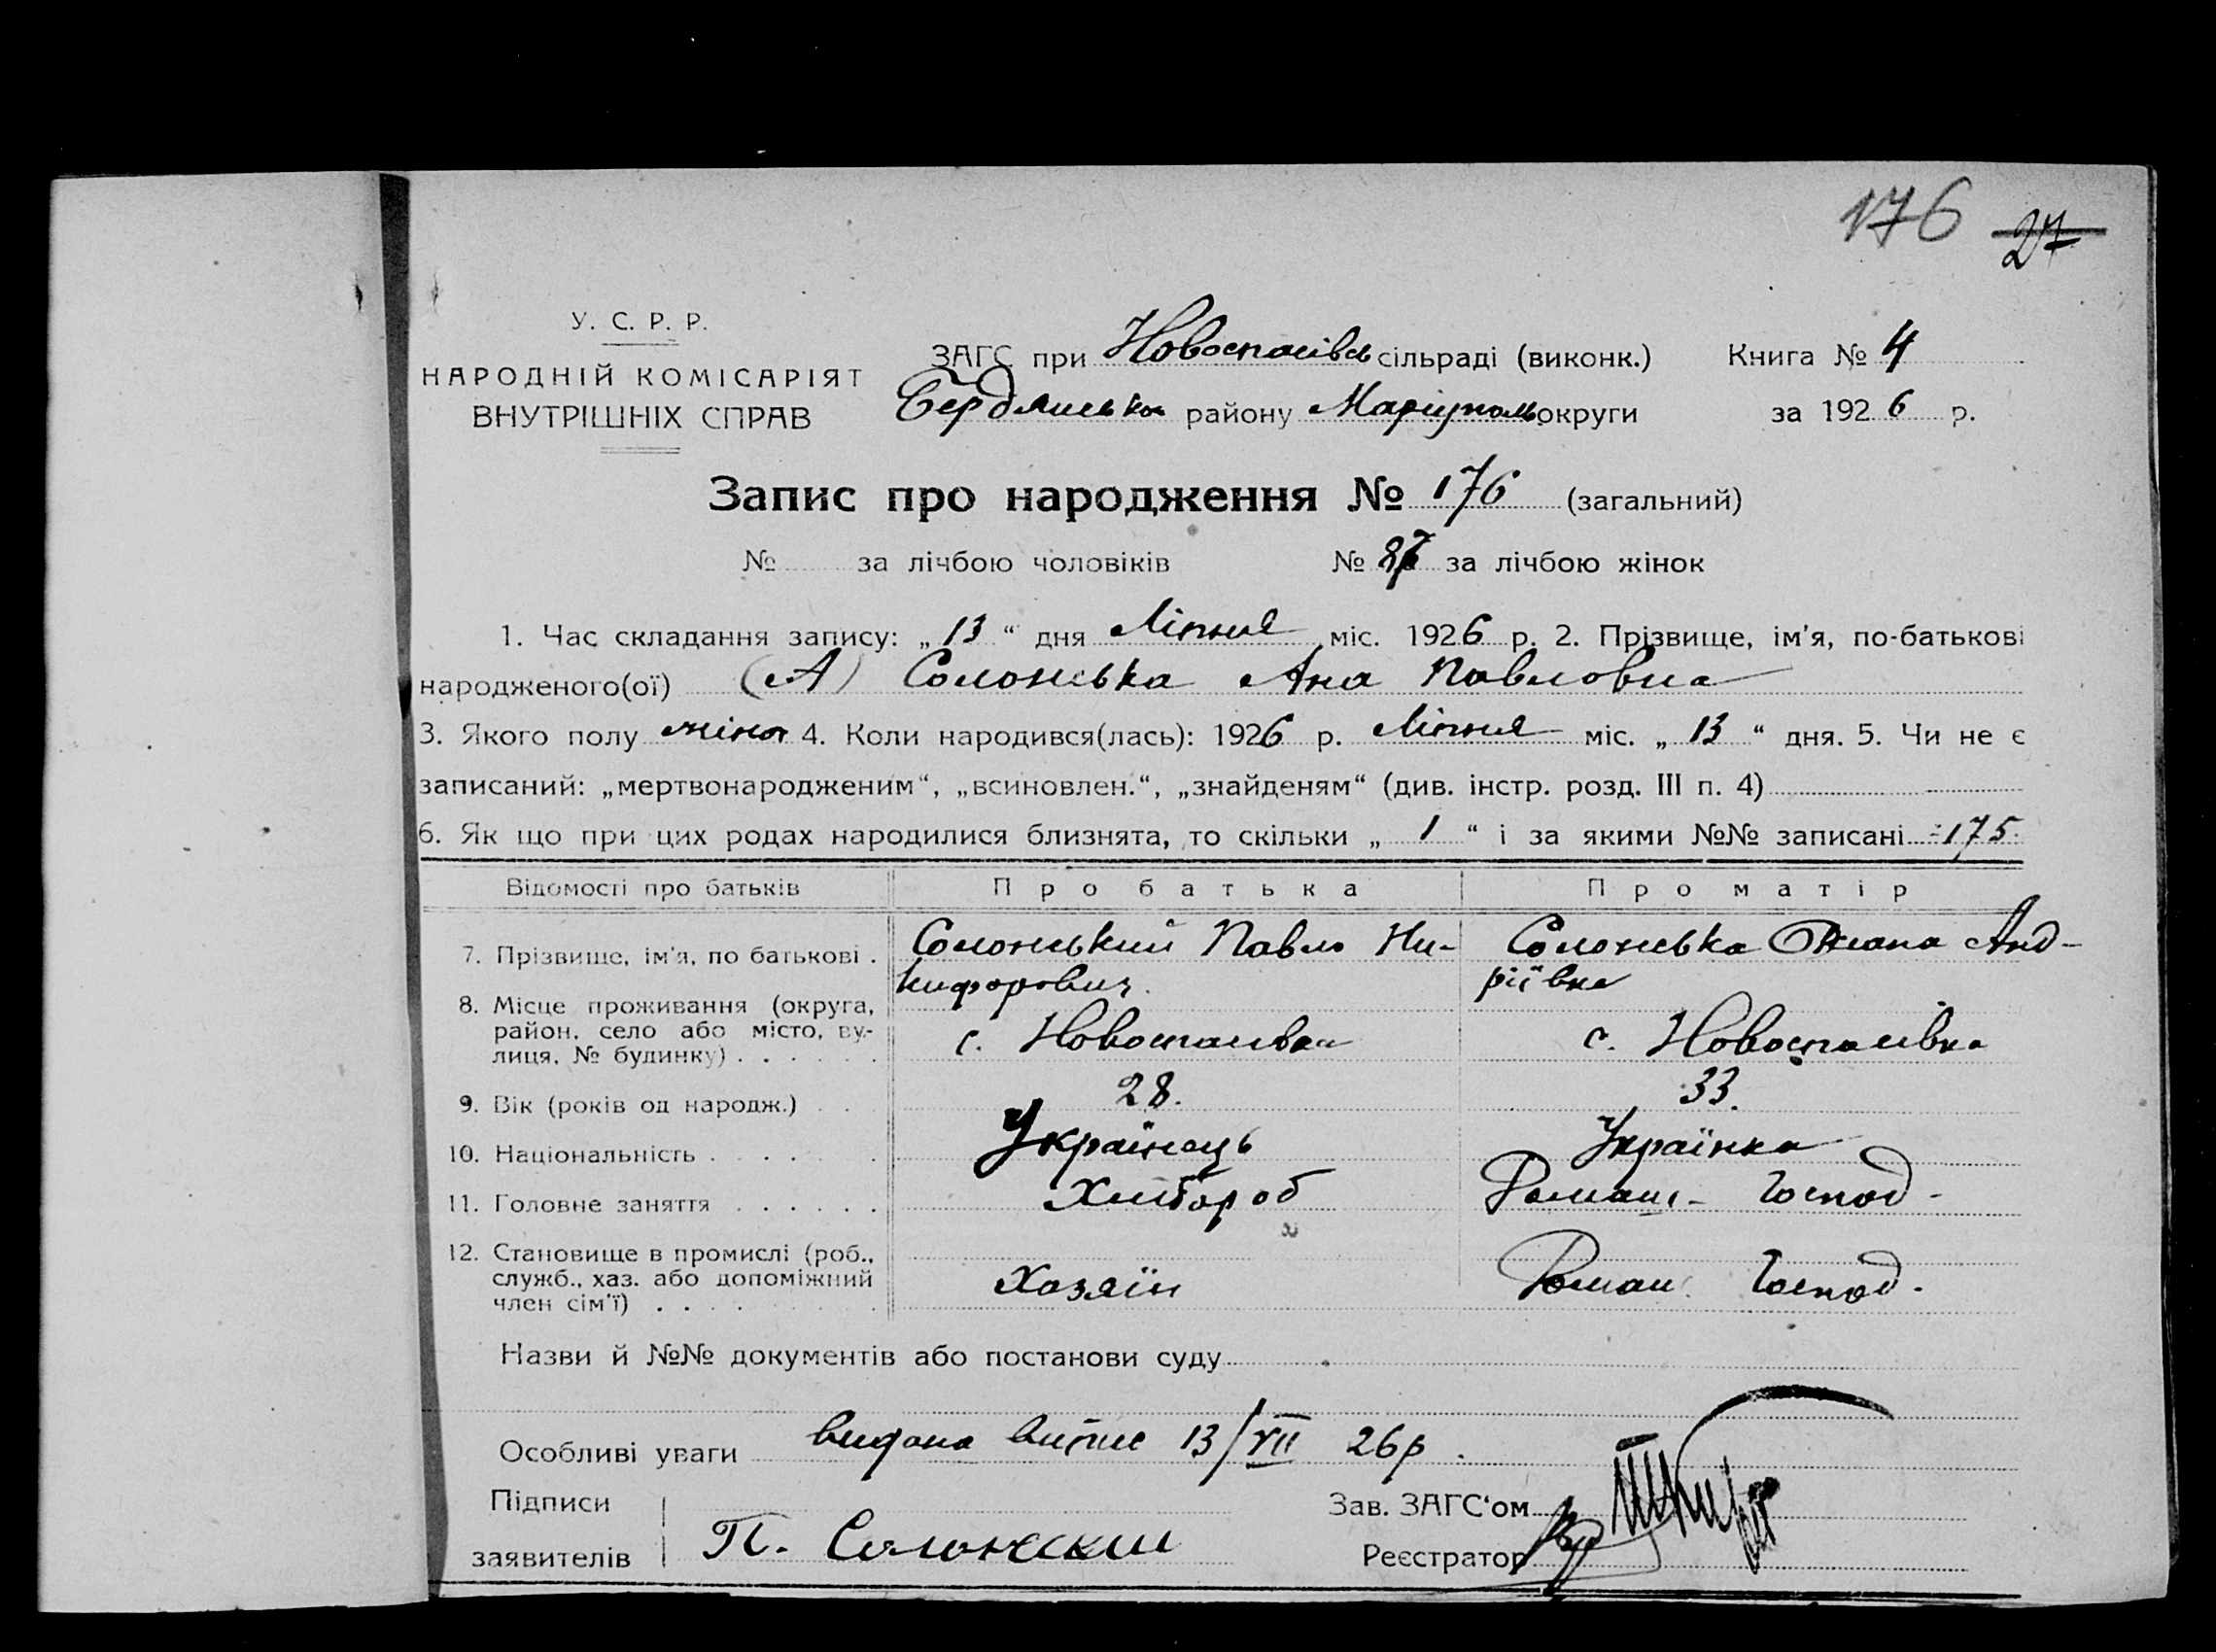 176 27
У. С. Р. Р.
НАРОДНІЙ КОМІСАРІЯТ
ВНУТРІШНІХ СПРАВ
ЗАГС при Новоспасівсь сільраді (виконк.) Книга № 4
Бердянська району Маріуполь округи за 1926 р.
Запис про народження № 176 (загальний)
№ за лічбою чоловіків № 87 за лічбою жінок
1. Час складання запису: „13“ дня Ліпня міс. 1926 р. 2. Прізвище, ім'я, по-батькові
народженого(ої) (А) Солонська Ана Павловна
3. Якого полу жіноч 4. Коли народився(лась): 1926 р. Ліпня міс. „13“ дня. 5. Чи не є
записаний: „мертвонародженим“, „всиновлен.“, „знайденям“ (див. інстр. розд. III п. 4)
6. Як що при цих родах народилися близнята, то скільки „1“ і за якими №№ записані 175
Відомості про батьків Про батька Про матір
7. Прізвище, ім'я, по батькові . Солонський Павло Ни-
кифорович. Солонська Оксана Анд-
ріївна
8. Місце проживання (округа,
район, село або місто, ву-
лиця, № будинку) . . . . . . с. Новоспасівка с. Новоспасівка
9. Вік (років од народж.) . . 28. 33.
10. Національність . . . . . Українець Українка
11. Головне заняття . . . . . . Хлібороб Домаш- Господ-
12. Становище в промислі (роб.,
служб., хаз. або допоміжний
член сім'ї) . . . . Хазяїн Домаш. Господ.
Назви й №№ документів або постанови суду
Особливі уваги видана випис 13/VII 26р.
Підписи
заявителів П. Солонский
Зав. ЗАГС'ом
Реєстратор